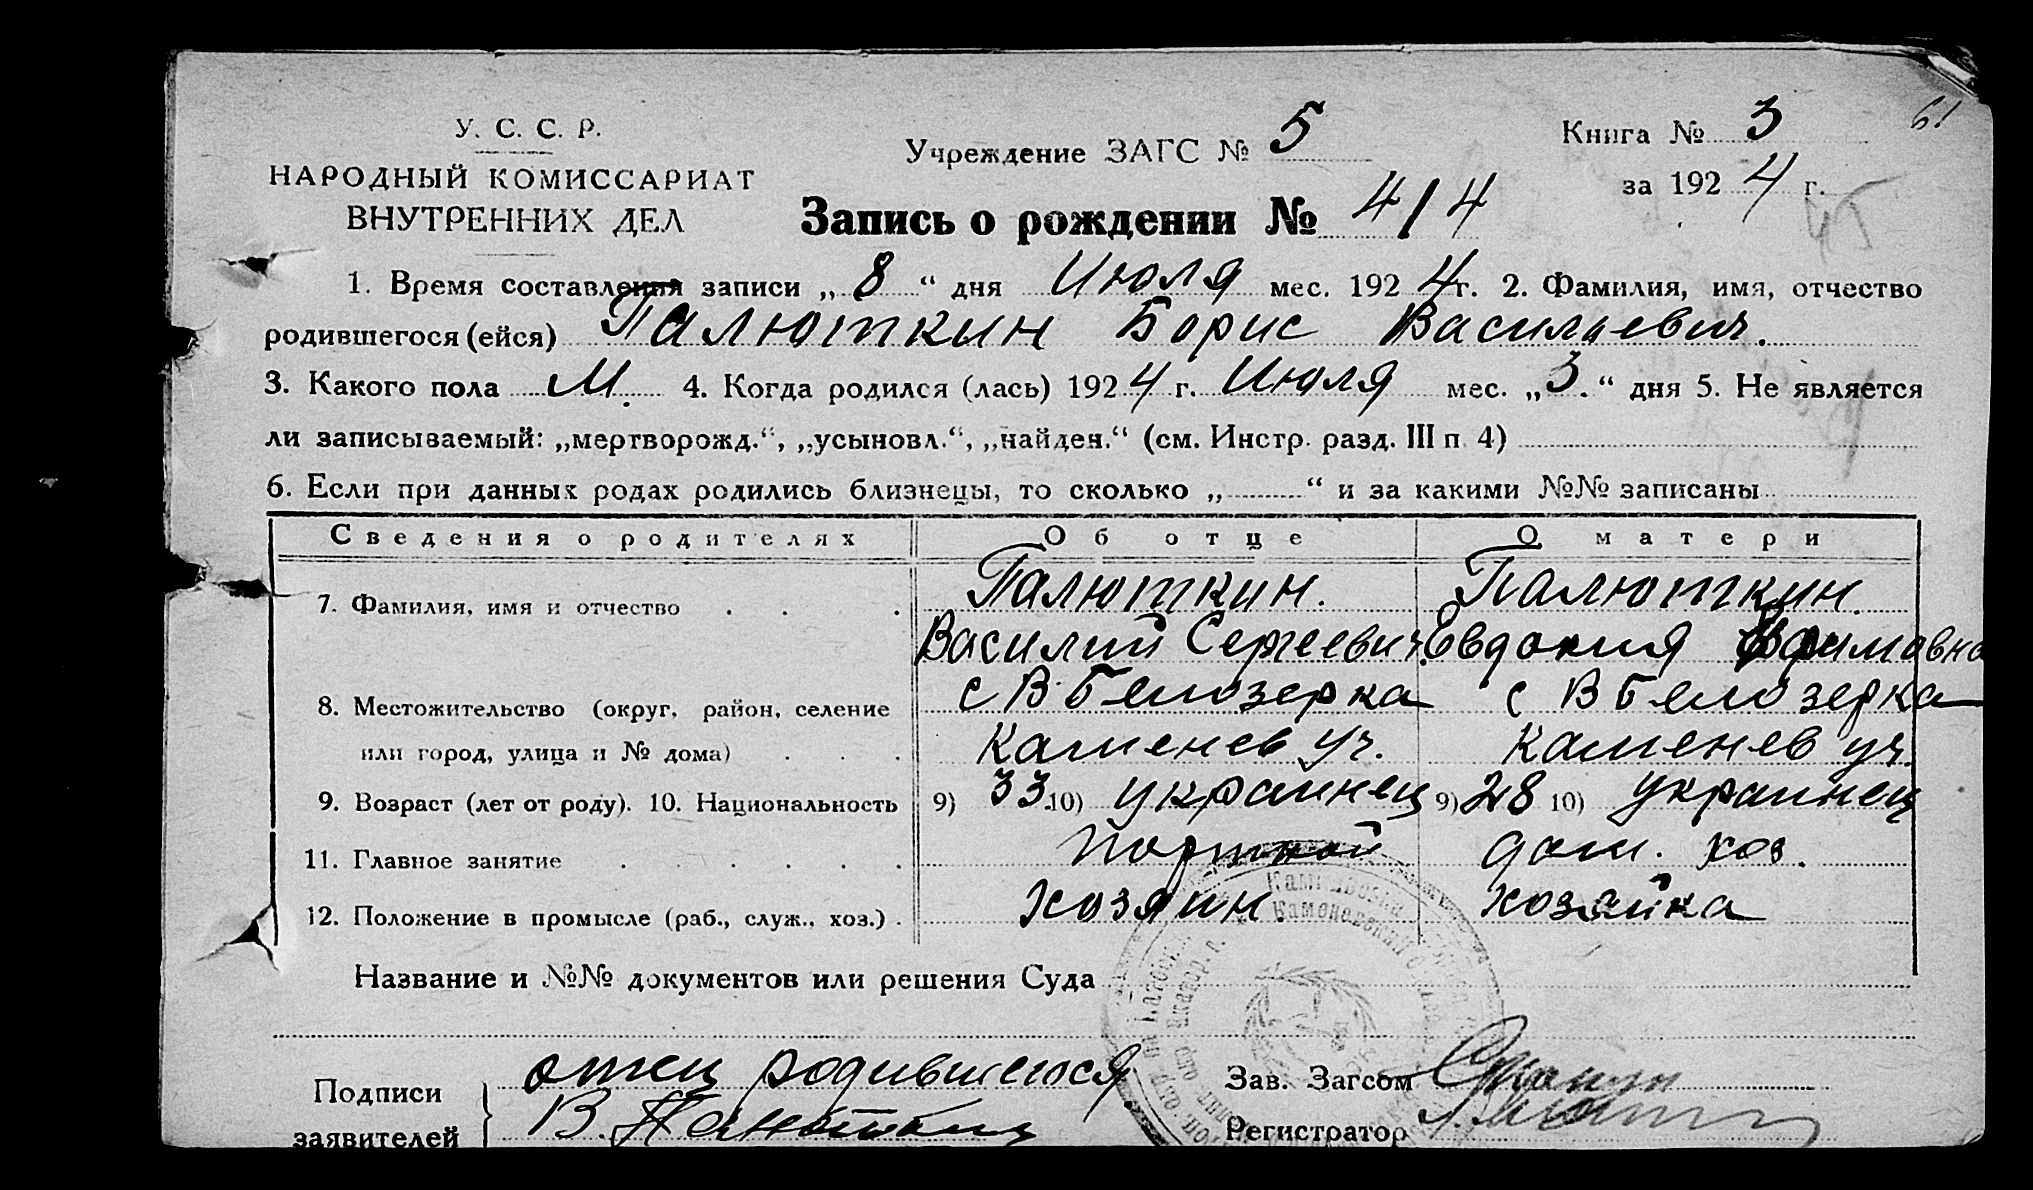 61
У. С. С. Р.
НАРОДНЫЙ КОМИССАРИАТ
ВНУТРЕННИХ ДЕЛ
Учреждение ЗАГС № 5
Книга № 3
за 1924 г.
45
Запись о рождении № 414
1. Время составления записи „8“ дня Июля мес. 1924 г. 2. Фамилия, имя, отчество
родившегося (ейся) Палюткин Борис Васильевич.
3. Какого пола М. 4. Когда родился (лась) 1924 г. Июля мес. „3.“ дня 5. Не является
ли записываемый: „мертворожд.“, „усыновл.“, „найден.“ (см. Инстр. разд. III п 4)
6. Если при данных родах родились близнецы, то сколько „ “ и за какими №№ записаны
Сведения о родителях Об отце О матери
7. Фамилия, имя и отчество . . . Палюткин. Палюткин.
Василий Сергеевич. Евдокия
8. Местожительство (округ, район, селение с В Белозерка с В Белозерка
или город, улица и № дома) . . . Каменев уч. Каменев уч.
9. Возраст (лет от роду). 10. Национальность 9) 33. 10) украинец 9) 28 10) украинец
11. Главное занятие . . . . . . Портной дом. хоз.
12. Положение в промысле (раб., служ., хоз.) . хозяин. хозяйка
Название и №№ документов или решения Суда
Подписи
заявителей
отец родившегося
В.
Зав. Загсом
Регистратор